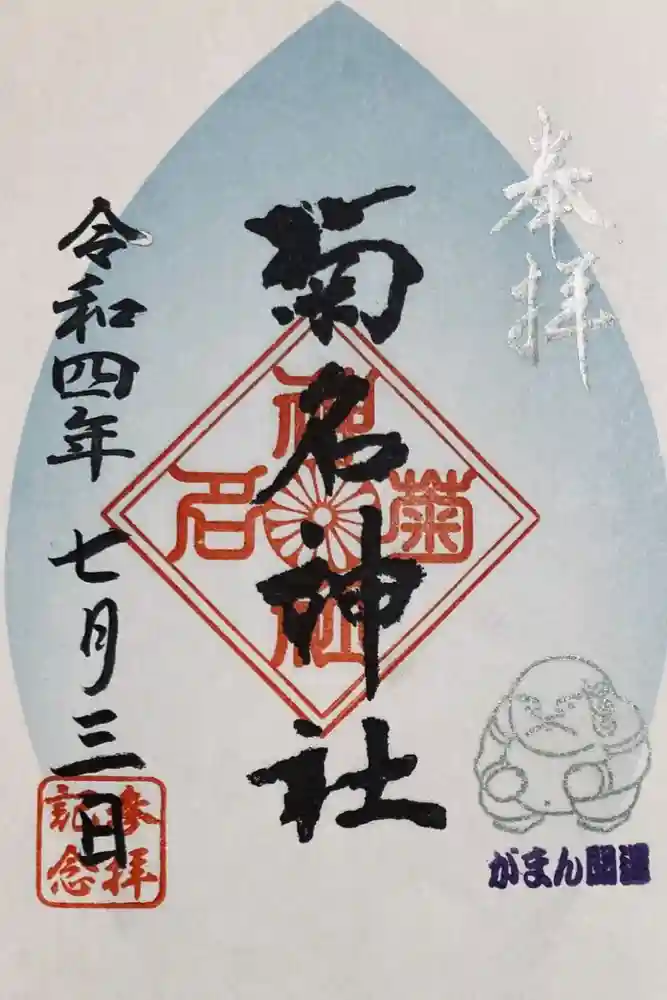 奉拝
菊名神社
神社
菊名
令和四年 七月三日
参拝
記念
がまん開運